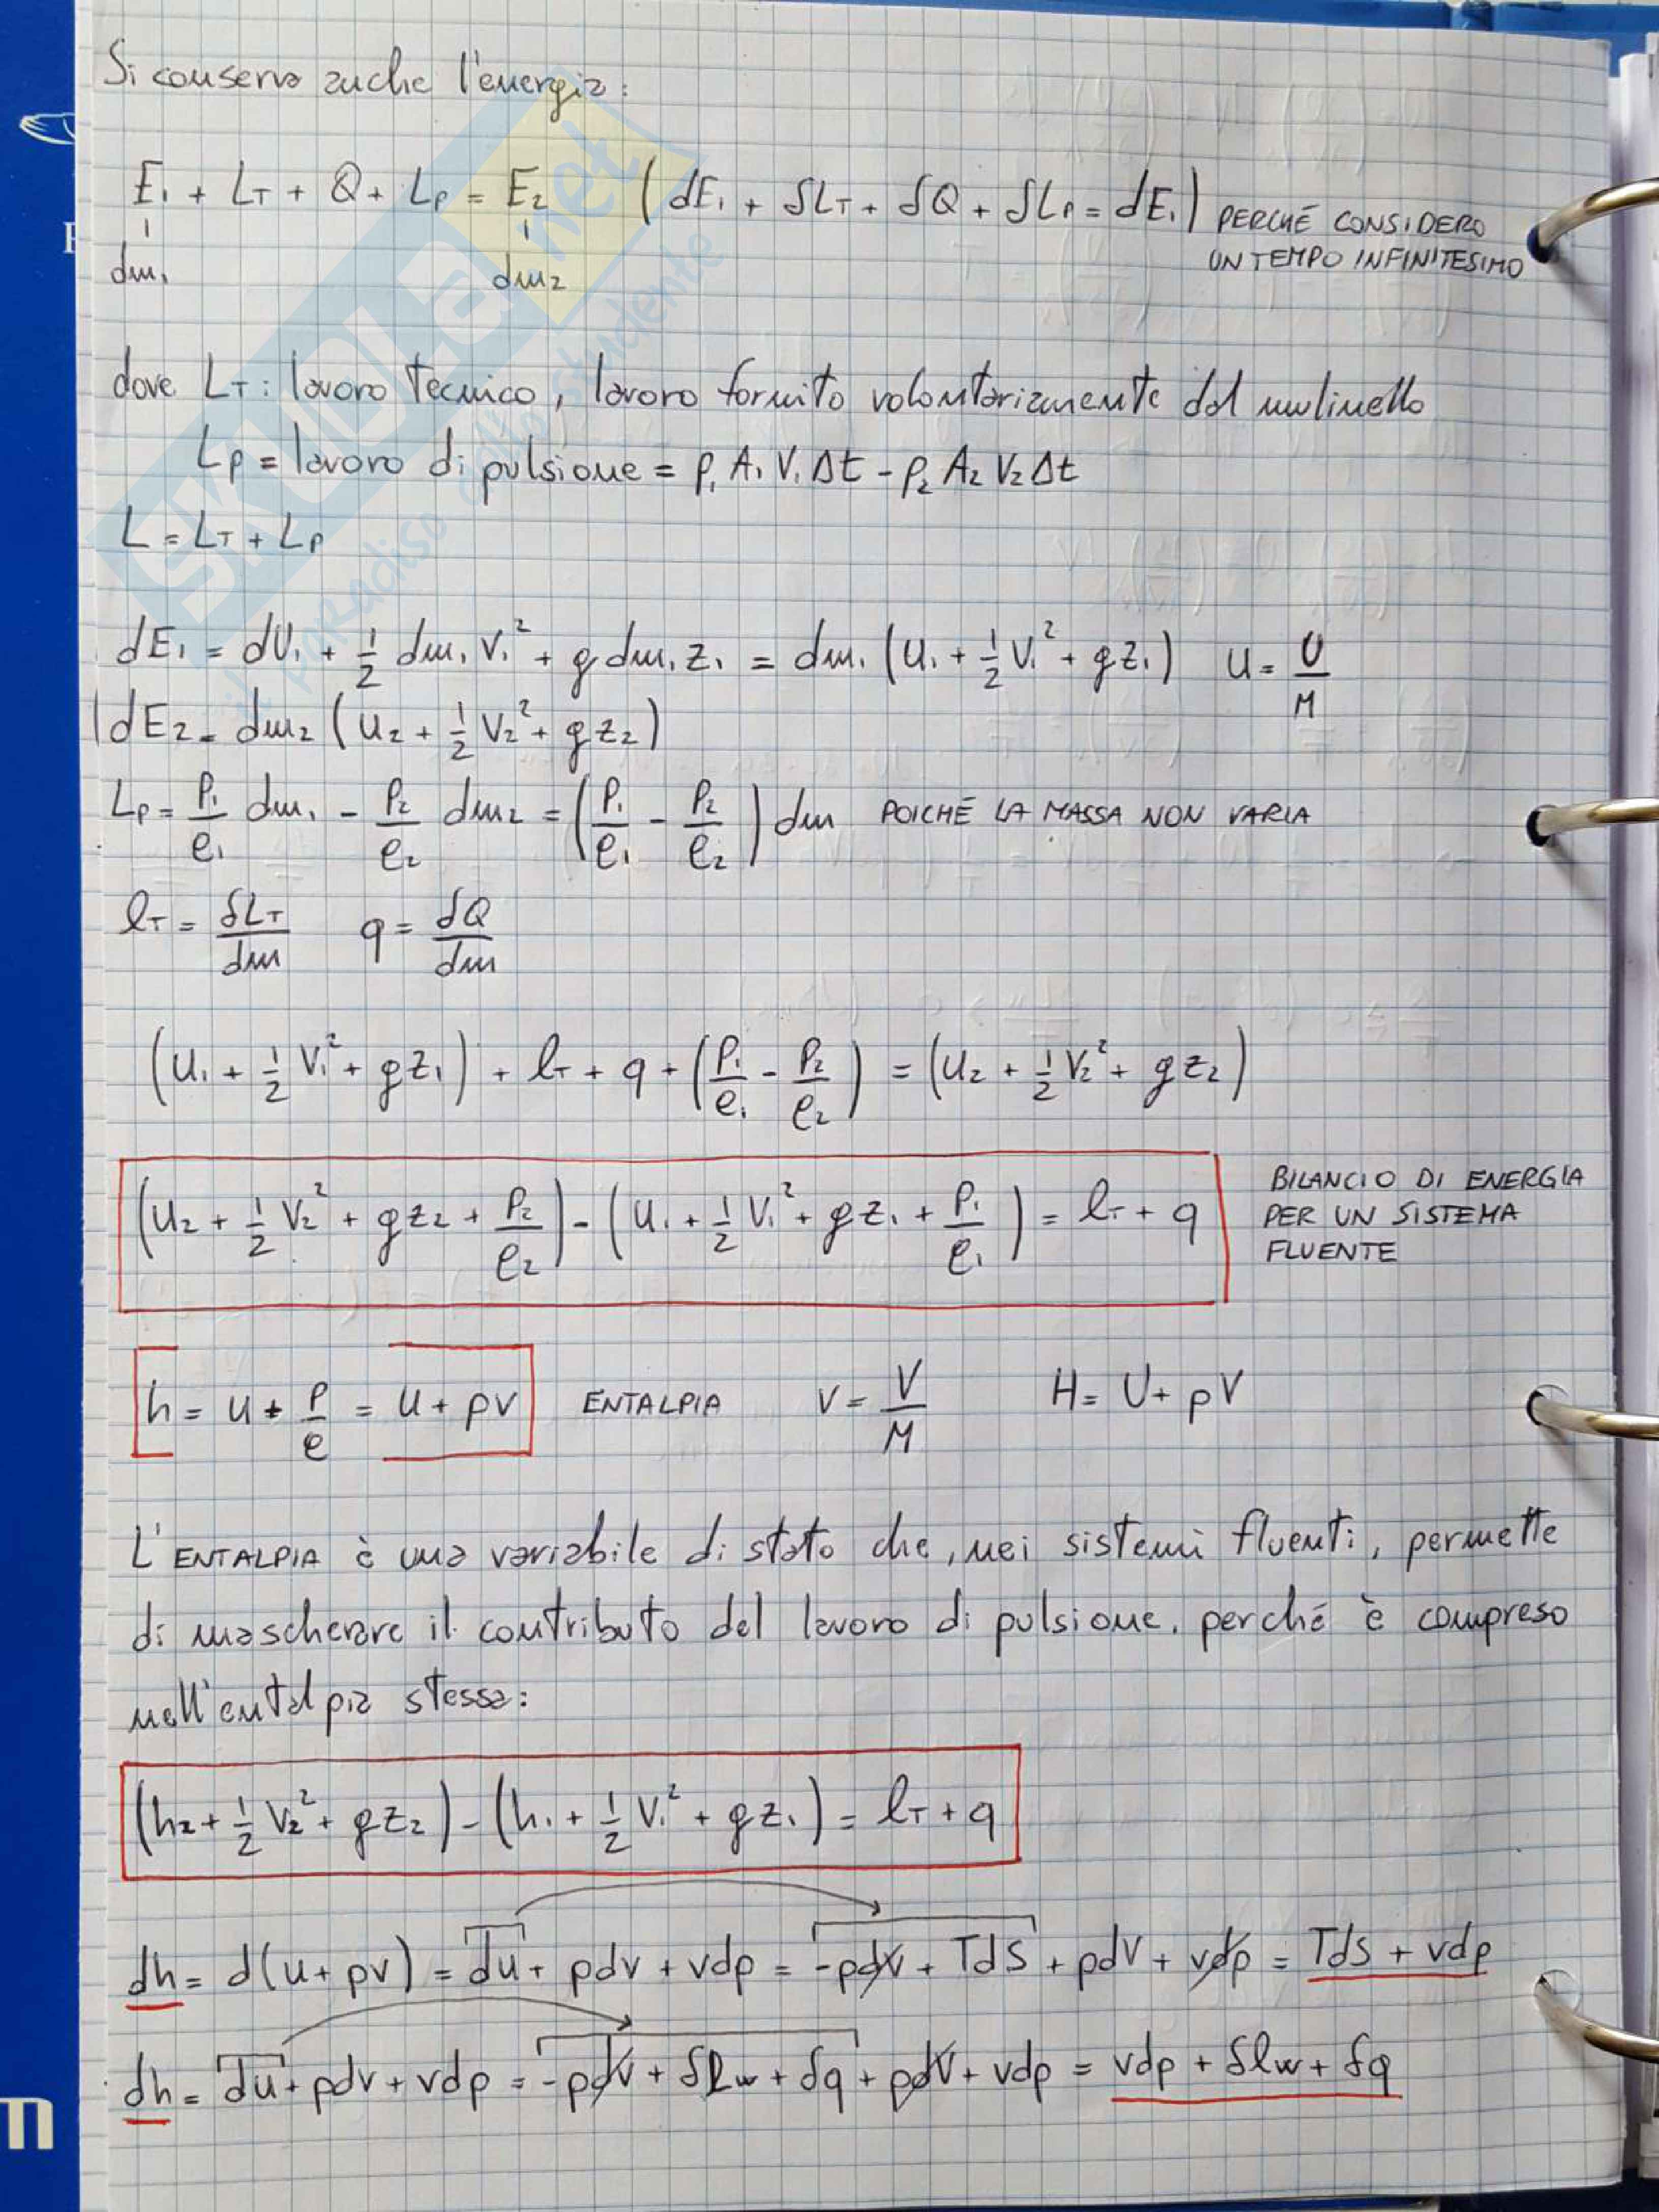 Si conserva anche l'energia:
E₁ + L_T + Q + L_P = E₂ (dE₁ + δL_T + δQ + δL_P = dE₁) PERCHÉ CONSIDERO
UN TEMPO INFINITESIMO
dm₁ dm₂
dove L_T: lavoro tecnico, lavoro fornito volontariamente dal mulinello
L_P = lavoro di pulsione = p₁ A₁ V₁ Δt - p₂ A₂ V₂ Δt
L = L_T + L_P
dE₁ = dU₁ + 1/2 dm₁ V₁² + g dm₁ z₁ = dm₁ (u₁ + 1/2 V₁² + g z₁) u = U/M
dE₂ = dm₂ (u₂ + 1/2 V₂² + g z₂)
L_P = p₁/ρ₁ dm₁ - p₂/ρ₂ dm₂ = (p₁/ρ₁ - p₂/ρ₂) dm POICHÉ LA MASSA NON VARIA
l_T = δL_T/dm q = δQ/dm
(u₁ + 1/2 V₁² + g z₁) + l_T + q + (p₁/ρ₁ - p₂/ρ₂) = (u₂ + 1/2 V₂² + g z₂)
(u₂ + 1/2 V₂² + g z₂ + p₂/ρ₂) - (u₁ + 1/2 V₁² + g z₁ + p₁/ρ₁) = l_T + q
BILANCIO DI ENERGIA
PER UN SISTEMA
FLUENTE
h = u + p/ρ = u + pv ENTALPIA v = V/M H = U + pV
L'ENTALPIA è una variabile di stato che, nei sistemi fluenti, permette
di mascherare il contributo del lavoro di pulsione, perché è compreso
nell'entalpia stessa:
(h₂ + 1/2 V₂² + g z₂) - (h₁ + 1/2 V₁² + g z₁) = l_T + q
dh = d(u + pv) = du + pdv + vdp = -pdv + Tds + pdv + vdp = Tds + vdp
dh = du + pdv + vdp = -pdv + δl_w + δq + pdv + vdp = vdp + δl_w + δq
SKUOLA.net
il paradiso dello studente
m